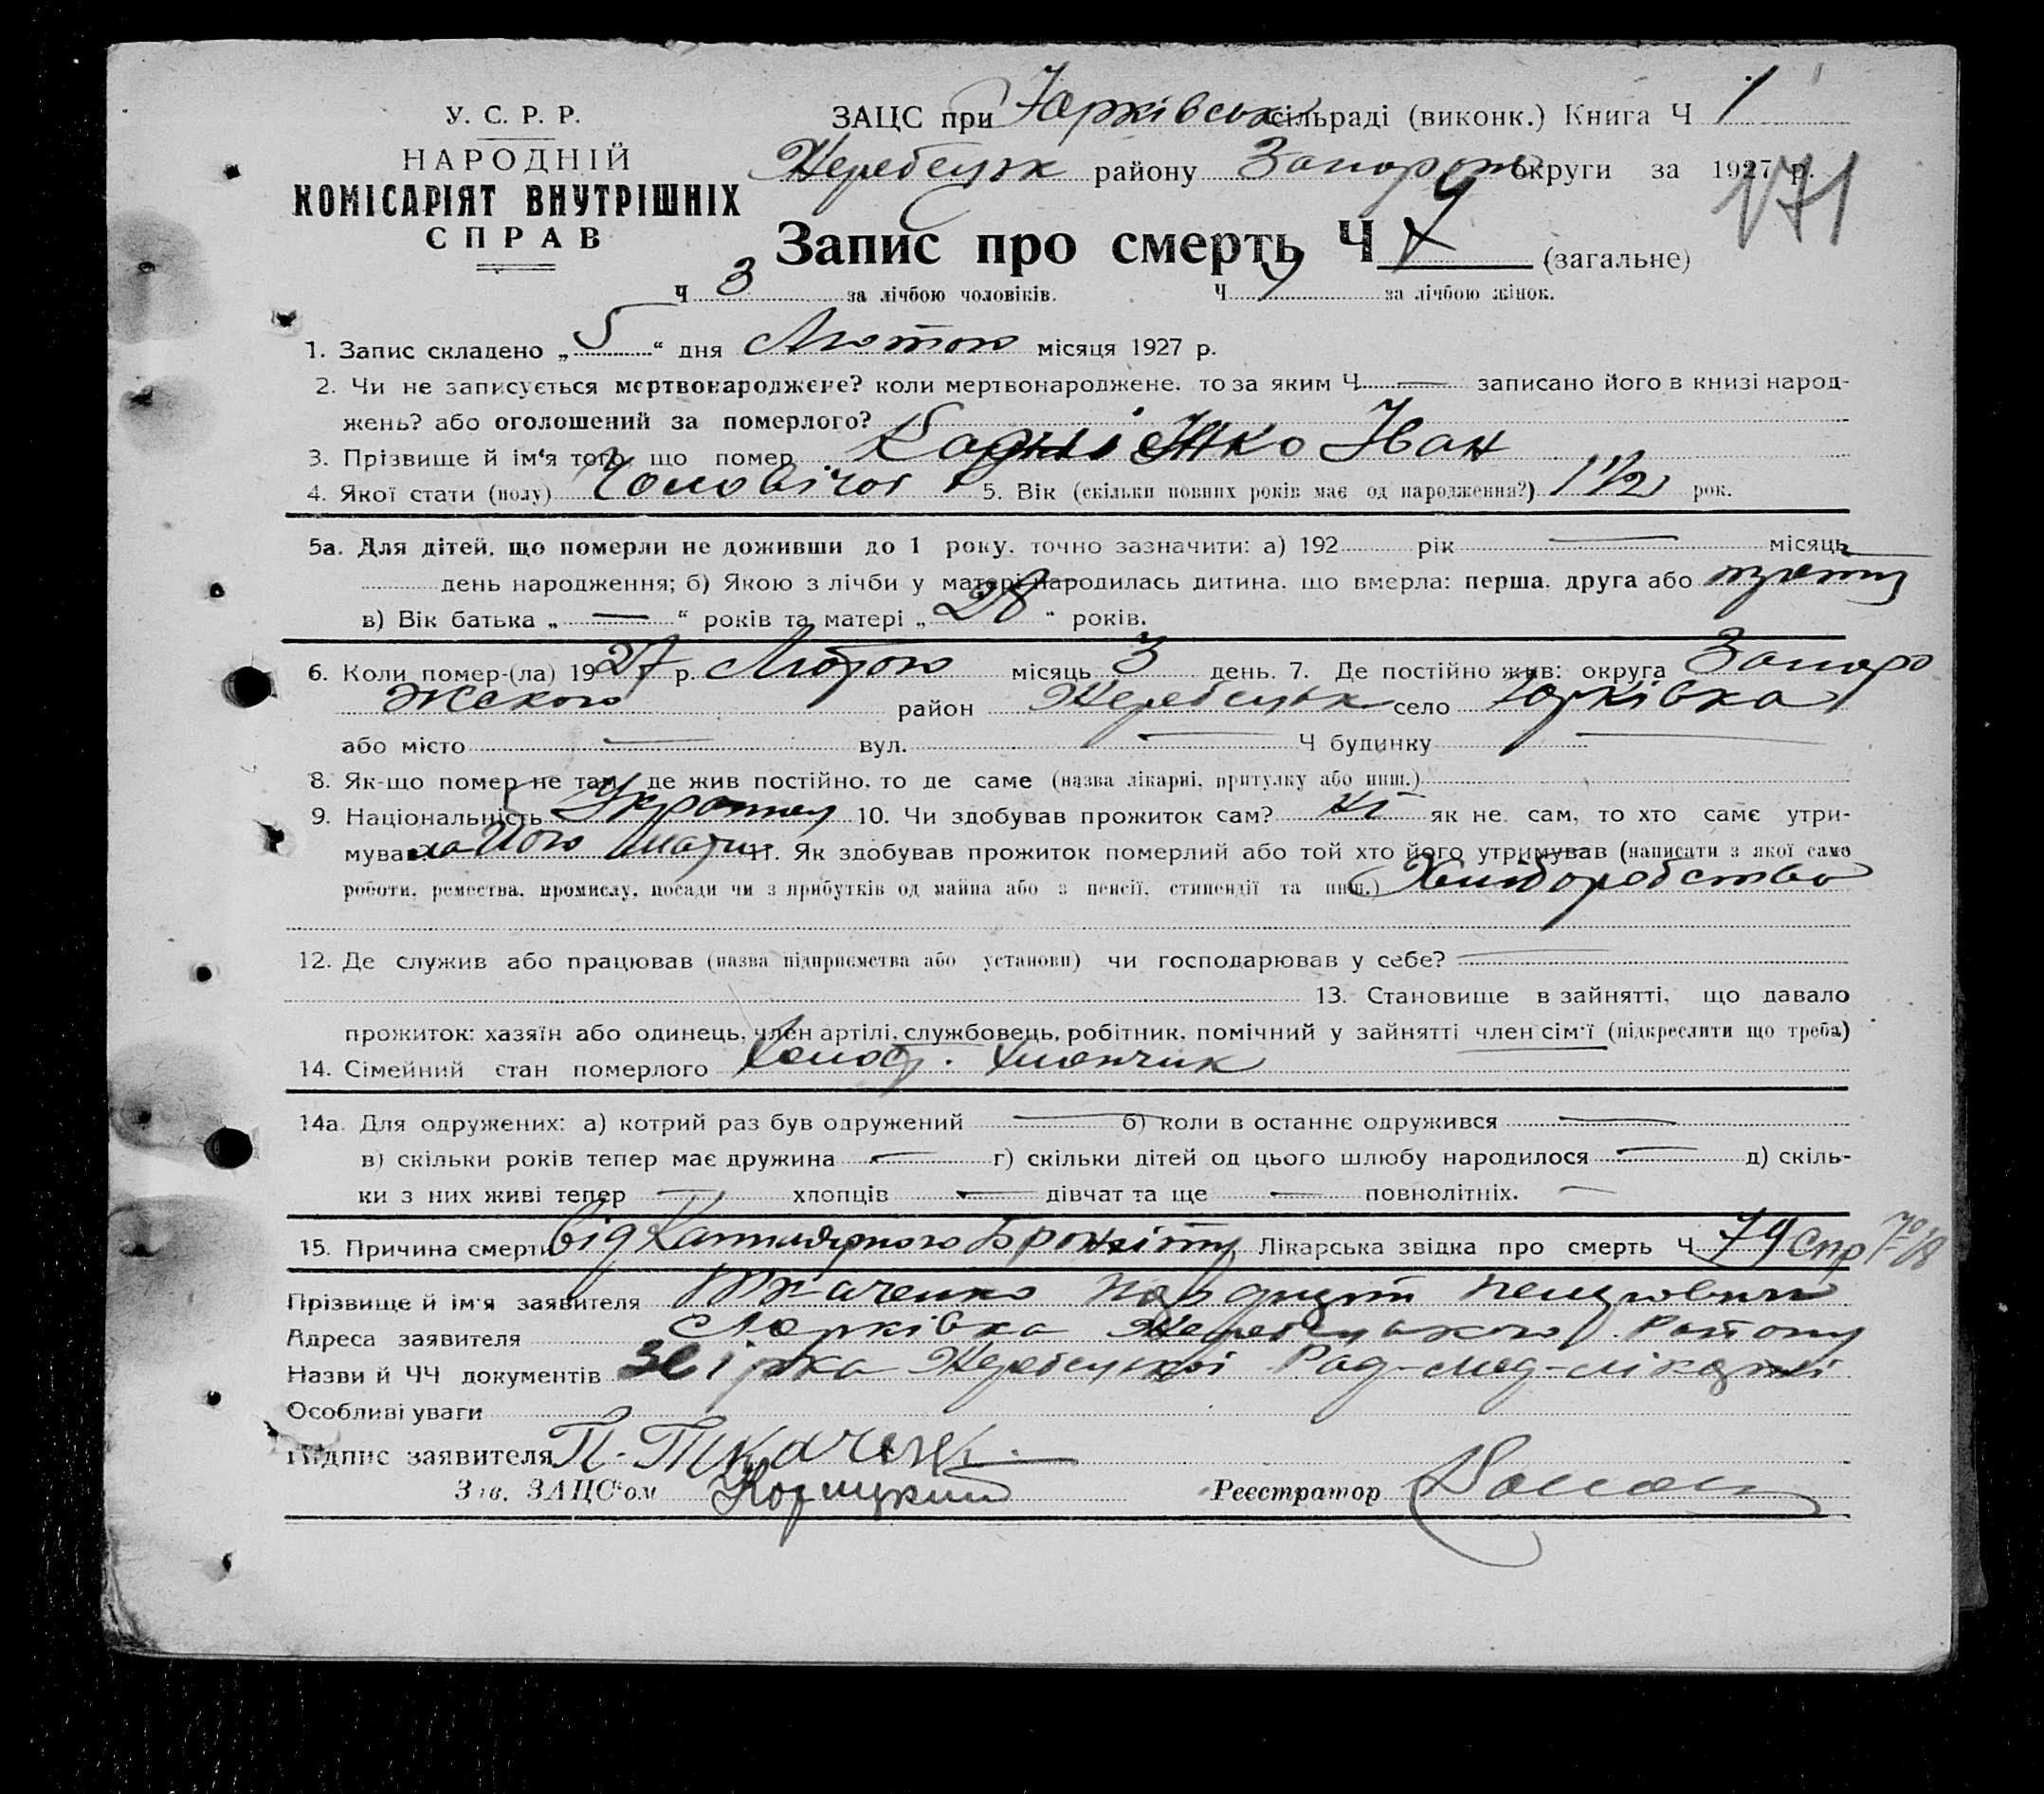 У. С. Р. Р.
НАРОДНІЙ
КОМІСАРІЯТ ВНУТРІШНІХ
СПРАВ
ЗАЦС при Юрківськ сільраді (виконк.) Книга Ч 1
Жеребецьк району Запорож округи за 1927 р.
171
Запис про смерть Ч (загальне)
Ч 3 за лічбою чоловіків. Ч за лічбою жінок.
1. Запис складено „ 5 “ дня Лютого місяця 1927 р.
2. Чи не записується мертвонароджене? коли мертвонароджене, то за яким Ч — записано його в книзі народ-
жень? або оголошений за померлого?
3. Прізвище й ім'я того, що помер Іван
4. Якої стати (полу) Чоловічої 5. Вік (скільки повних років має од народження?) 1 1/2 рок.
5а. Для дітей, що померли не доживши до 1 року, точно зазначити: а) 192 рік — місяць —
день народження; б) Якою з лічби у матері народилась дитина, що вмерла: перша, друга або
в) Вік батька „ — “ років та матері „ 28 “ років.
6. Коли помер-(ла) 1927 р. Лютого місяць 3 день. 7. Де постійно жив: округа Запоро
жского район Жеребецьк село Юрківка
або місто — вул. — Ч будинку —
8. Як-що помер не там, де жив постійно, то де саме (назва лікарні, притулку або инш.)
9. Національність 10. Чи здобував прожиток сам? ні як не сам, то хто саме утри-
мував його мати 11. Як здобував прожиток померлий або той хто його утримував (написати з якої само
роботи, ремества, промислу, посади чи з прибутків од майна або з пенсії, стипендії та инш.) Хліборобство
12. Де служив або працював (назва підприємства або установи) чи господарював у себе? —
13. Становище в зайнятті, що давало
прожиток: хазяїн або одинець, член артілі, службовець, робітник, помічний у зайнятті член сім'ї (підкреслити що треба)
14. Сімейний стан померлого Холост. хлопчик
14а. Для одружених: а) котрий раз був одружений — б) коли в останнє одружився —
в) скільки років тепер має дружина — г) скільки дітей од цього шлюбу народилося — д) скіль-
ки з них живі тепер — хлопців — дівчат та ще — повнолітніх. —
15. Причина смерти від Капилярного Бронхіту Лікарська звідка про смерть Ч 79
Прізвище й ім'я заявителя Ткаченко
Адреса заявителя Юрківка Жеребецького Району
Назви й ЧЧ документів Жеребецької Рад-мед-лікарні
Особливі уваги
Підпис заявителя П. Ткаченк
Зав. ЗАЦС'ом Реєстратор